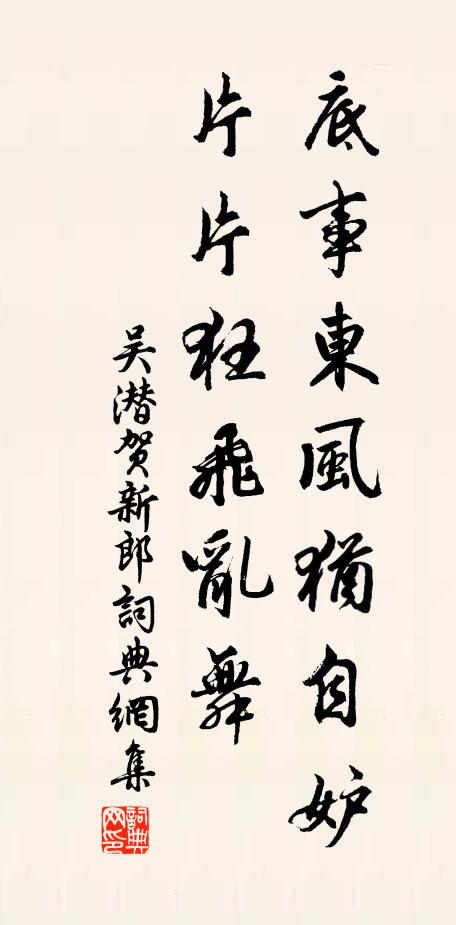 底事東風猶自妒
片片狂飛亂舞
吴潛贺新郎詞典網集
詞典網印